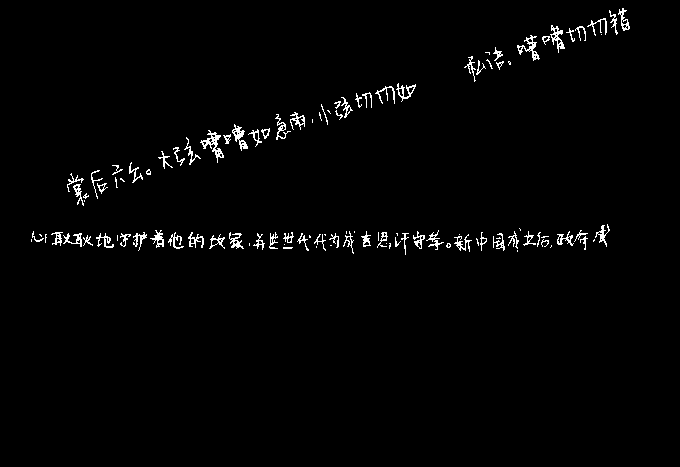 裳后六幺。大弦嘈嘈如急雨,小弦切切如
私语。嘈嘈切切错
心耿耿地守护着他的故家,并世世代代为成吉思汗守孝。新中国成立后,政府成